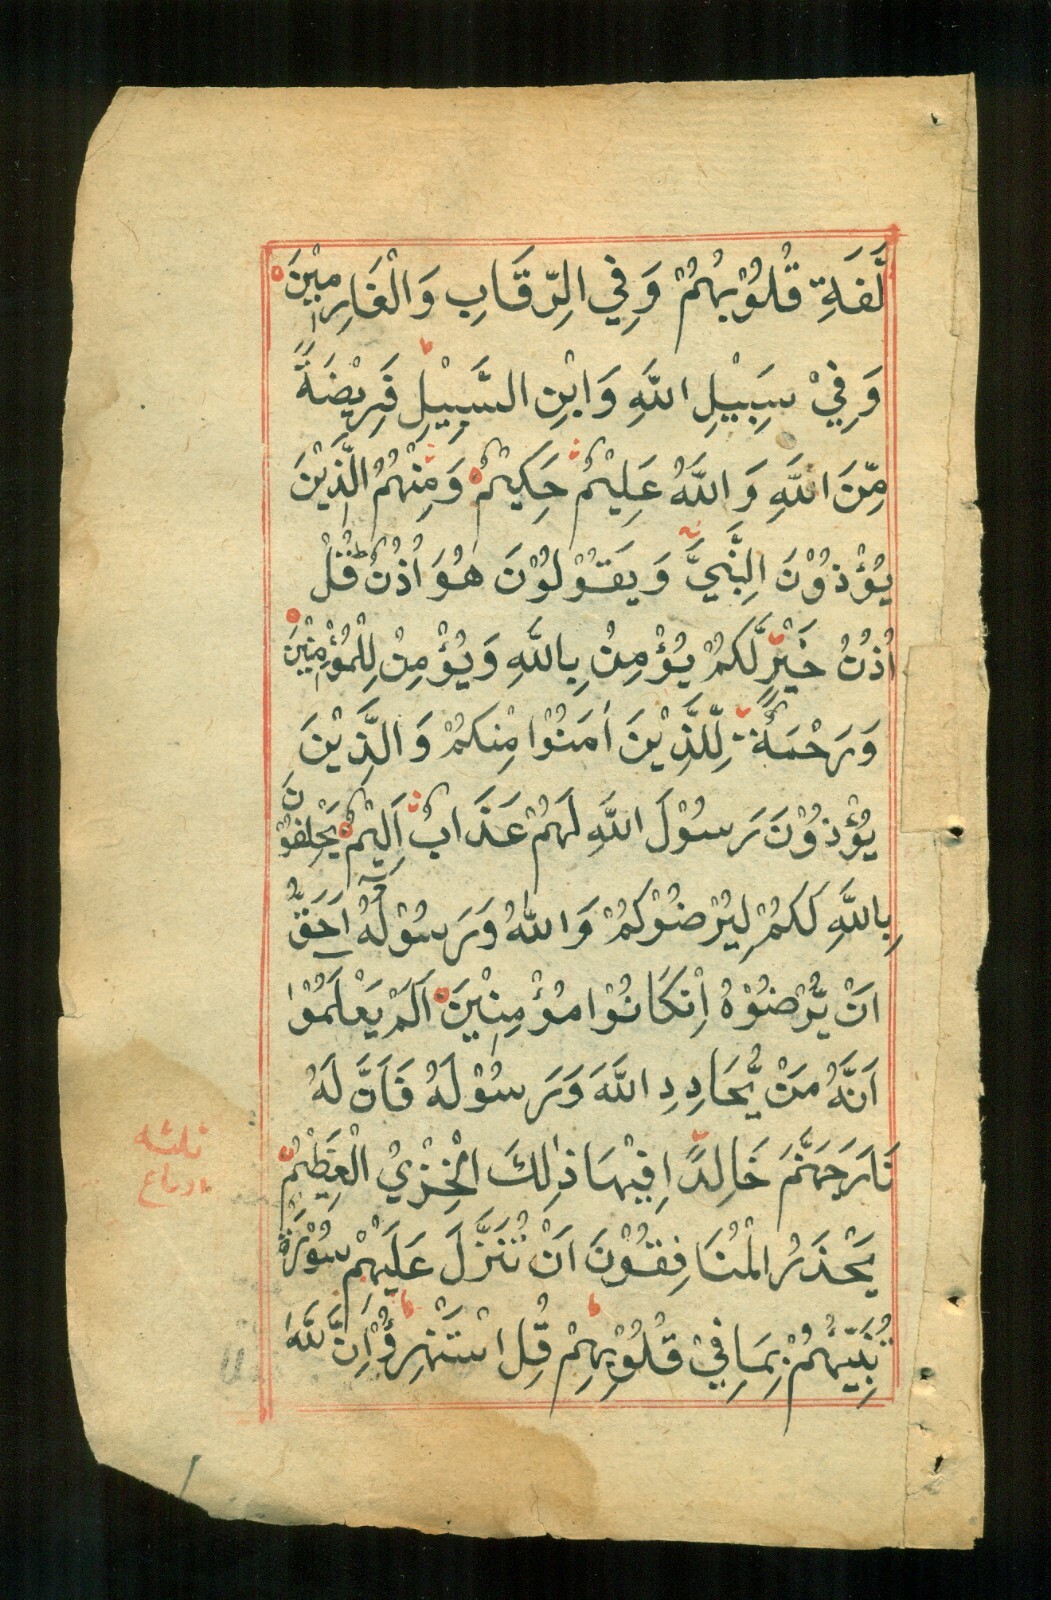 لَّفَةِ قُلُوْبُهُمْ وَفِي الرِّقَابِ وَالْغَارِمِيْنَ
وَفِيْ سَبِيْلِ اللَّهِ وَابْنِ السَّبِيْلِ فَرِيْضَةً
مِّنَ اللَّهِ وَاللَّهُ عَلِيْمٌ حَكِيْمٌ وَمِنْهُمُ الَّذِيْنَ
يُؤْذُوْنَ النَّبِيَّ وَيَقُوْلُوْنَ هُوَ اُذُنٌ قُلْ
اُذُنُ خَيْرٍ لَّكُمْ يُؤْمِنُ بِاللَّهِ وَيُؤْمِنُ لِلْمُؤْمِنِيْنَ
وَرَحْمَةٌ لِّلَّذِيْنَ اٰمَنُوْا مِنْكُمْ وَالَّذِيْنَ
يُؤْذُوْنَ رَسُوْلَ اللَّهِ لَهُمْ عَذَابٌ اَلِيْمٌ يَحْلِفُوْنَ
بِاللَّهِ لَكُمْ لِيُرْضُوْكُمْ وَاللَّهُ وَرَسُوْلُهٗ اَحَقُّ
اَنْ يُّرْضُوْهُ اِنْكَانُوْا مُؤْمِنِيْنَ اَلَمْ يَعْلَمُوْا
اَنَّهٗ مَنْ يُّحَادِدِ اللَّهَ وَرَسُوْلَهٗ فَاَنَّ لَهٗ
نَارَ جَهَنَّمَ خَالِدًا فِيْهَا ذٰلِكَ الْخِزْيُ الْعَظِيْمُ
يَحْذَرُ الْمُنَافِقُوْنَ اَنْ تُنَزَّلَ عَلَيْهِمْ سُوْرَةٌ
تُنَبِّئُهُمْ بِمَا فِيْ قُلُوْبِهِمْ قُلِ اسْتَهْزِءُوْا اِنَّ اللَّهَ
ثلثة